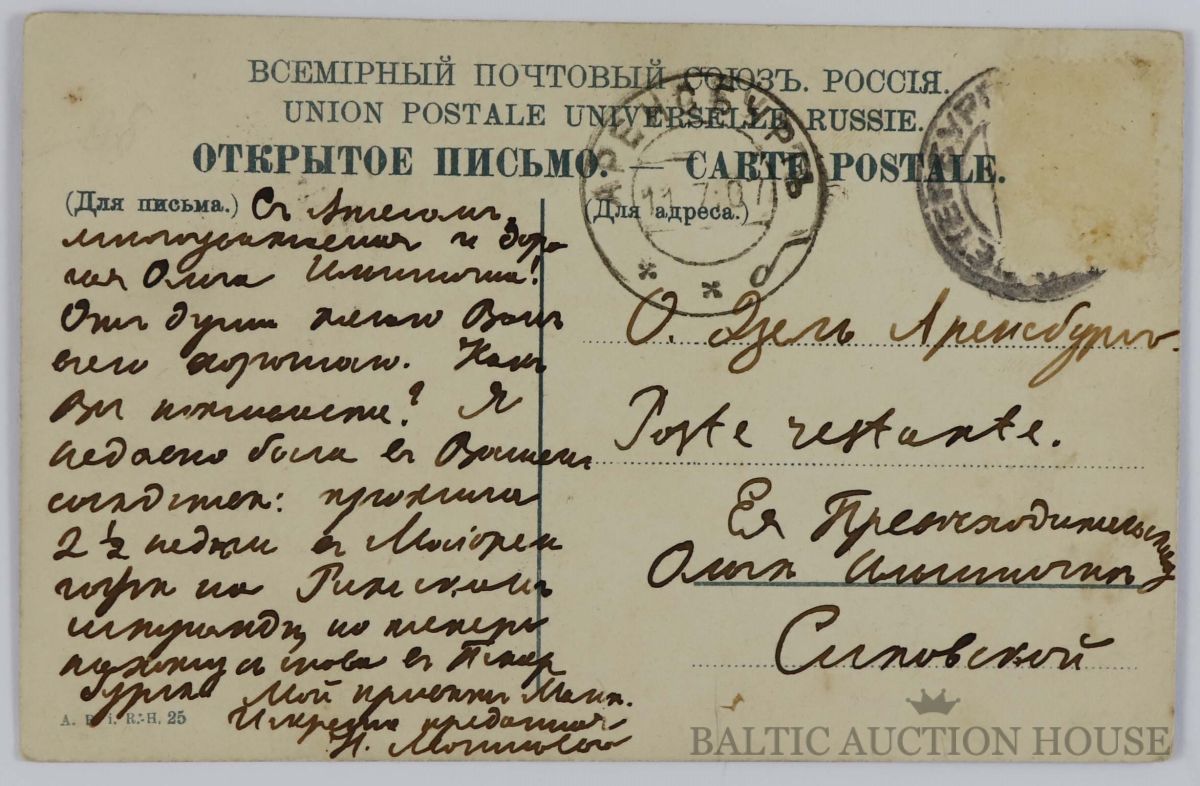 ВСЕМІРНЫЙ ПОЧТОВЫЙ СОЮЗЪ. РОССІЯ.
UNION POSTALE UNIVERSELLE RUSSIE.
ОТКРЫТОЕ ПИСЬМО. — CARTE POSTALE.
(Для письма.)
Съ Ангеломъ,
многоуважаемая и доро
гая Ольга Ильинична!
Отъ души желаю Вамъ
всего хорошаго. Какъ
Вы поживаете? Я
недавно была въ Вашемъ
сосѣдствѣ: прожила
2 ½ недѣли въ Маіорен
гофѣ на Рижскомъ
но теперь
нахожусь снова въ Петер
бургѣ Мой привѣтъ
Искренно преданная
Н.
А. 25
(Для адреса.)
АРЕНСБУРГЪ
11.7.07
ПЕТЕРБУРГ
О. Эзель Аренсбургъ.
Poste restante.
Ея Превосходительству
Ольгѣ Ильиничнѣ
Сиповской
BALTIC AUCTION HOUSE